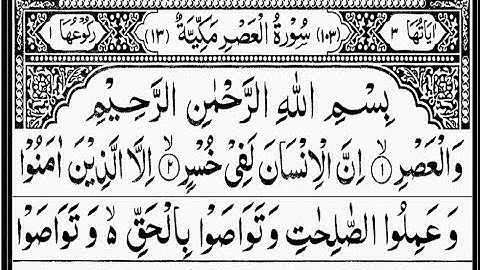 اٰیَاتُهَا ٣ (١٠٣) سُوْرَةُ الْعَصْرِ مَكِّيَّةٌ (١٣) رُكُوْعُهَا ١
بِسْمِ اللهِ الرَّحْمٰنِ الرَّحِيْمِ
وَالْعَصْرِ ۙ‏﴿١﴾ اِنَّ الْاِنْسَانَ لَفِيْ خُسْرٍ ۙ‏﴿٢﴾ اِلَّا الَّذِيْنَ اٰمَنُوْا
وَ عَمِلُوا الصّٰلِحٰتِ وَتَوَاصَوْا بِالْحَقِّ ۙ۬ وَ تَوَاصَوْا